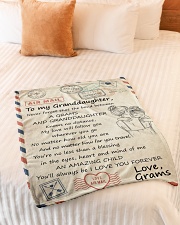 AIR MAIL
To my Granddaughter,
Never forget that the bond between
A GRAMS
AND A GRANDDAUGHTER
Knows no distance
My love will follow you
wherever you go
No matter how old you are
And no matter how far you travel
You're no less than a blessing
in the eyes, heart and mind of me
AN AMAZING CHILD
You'll always be I LOVE YOU FOREVER
Love,
Grams